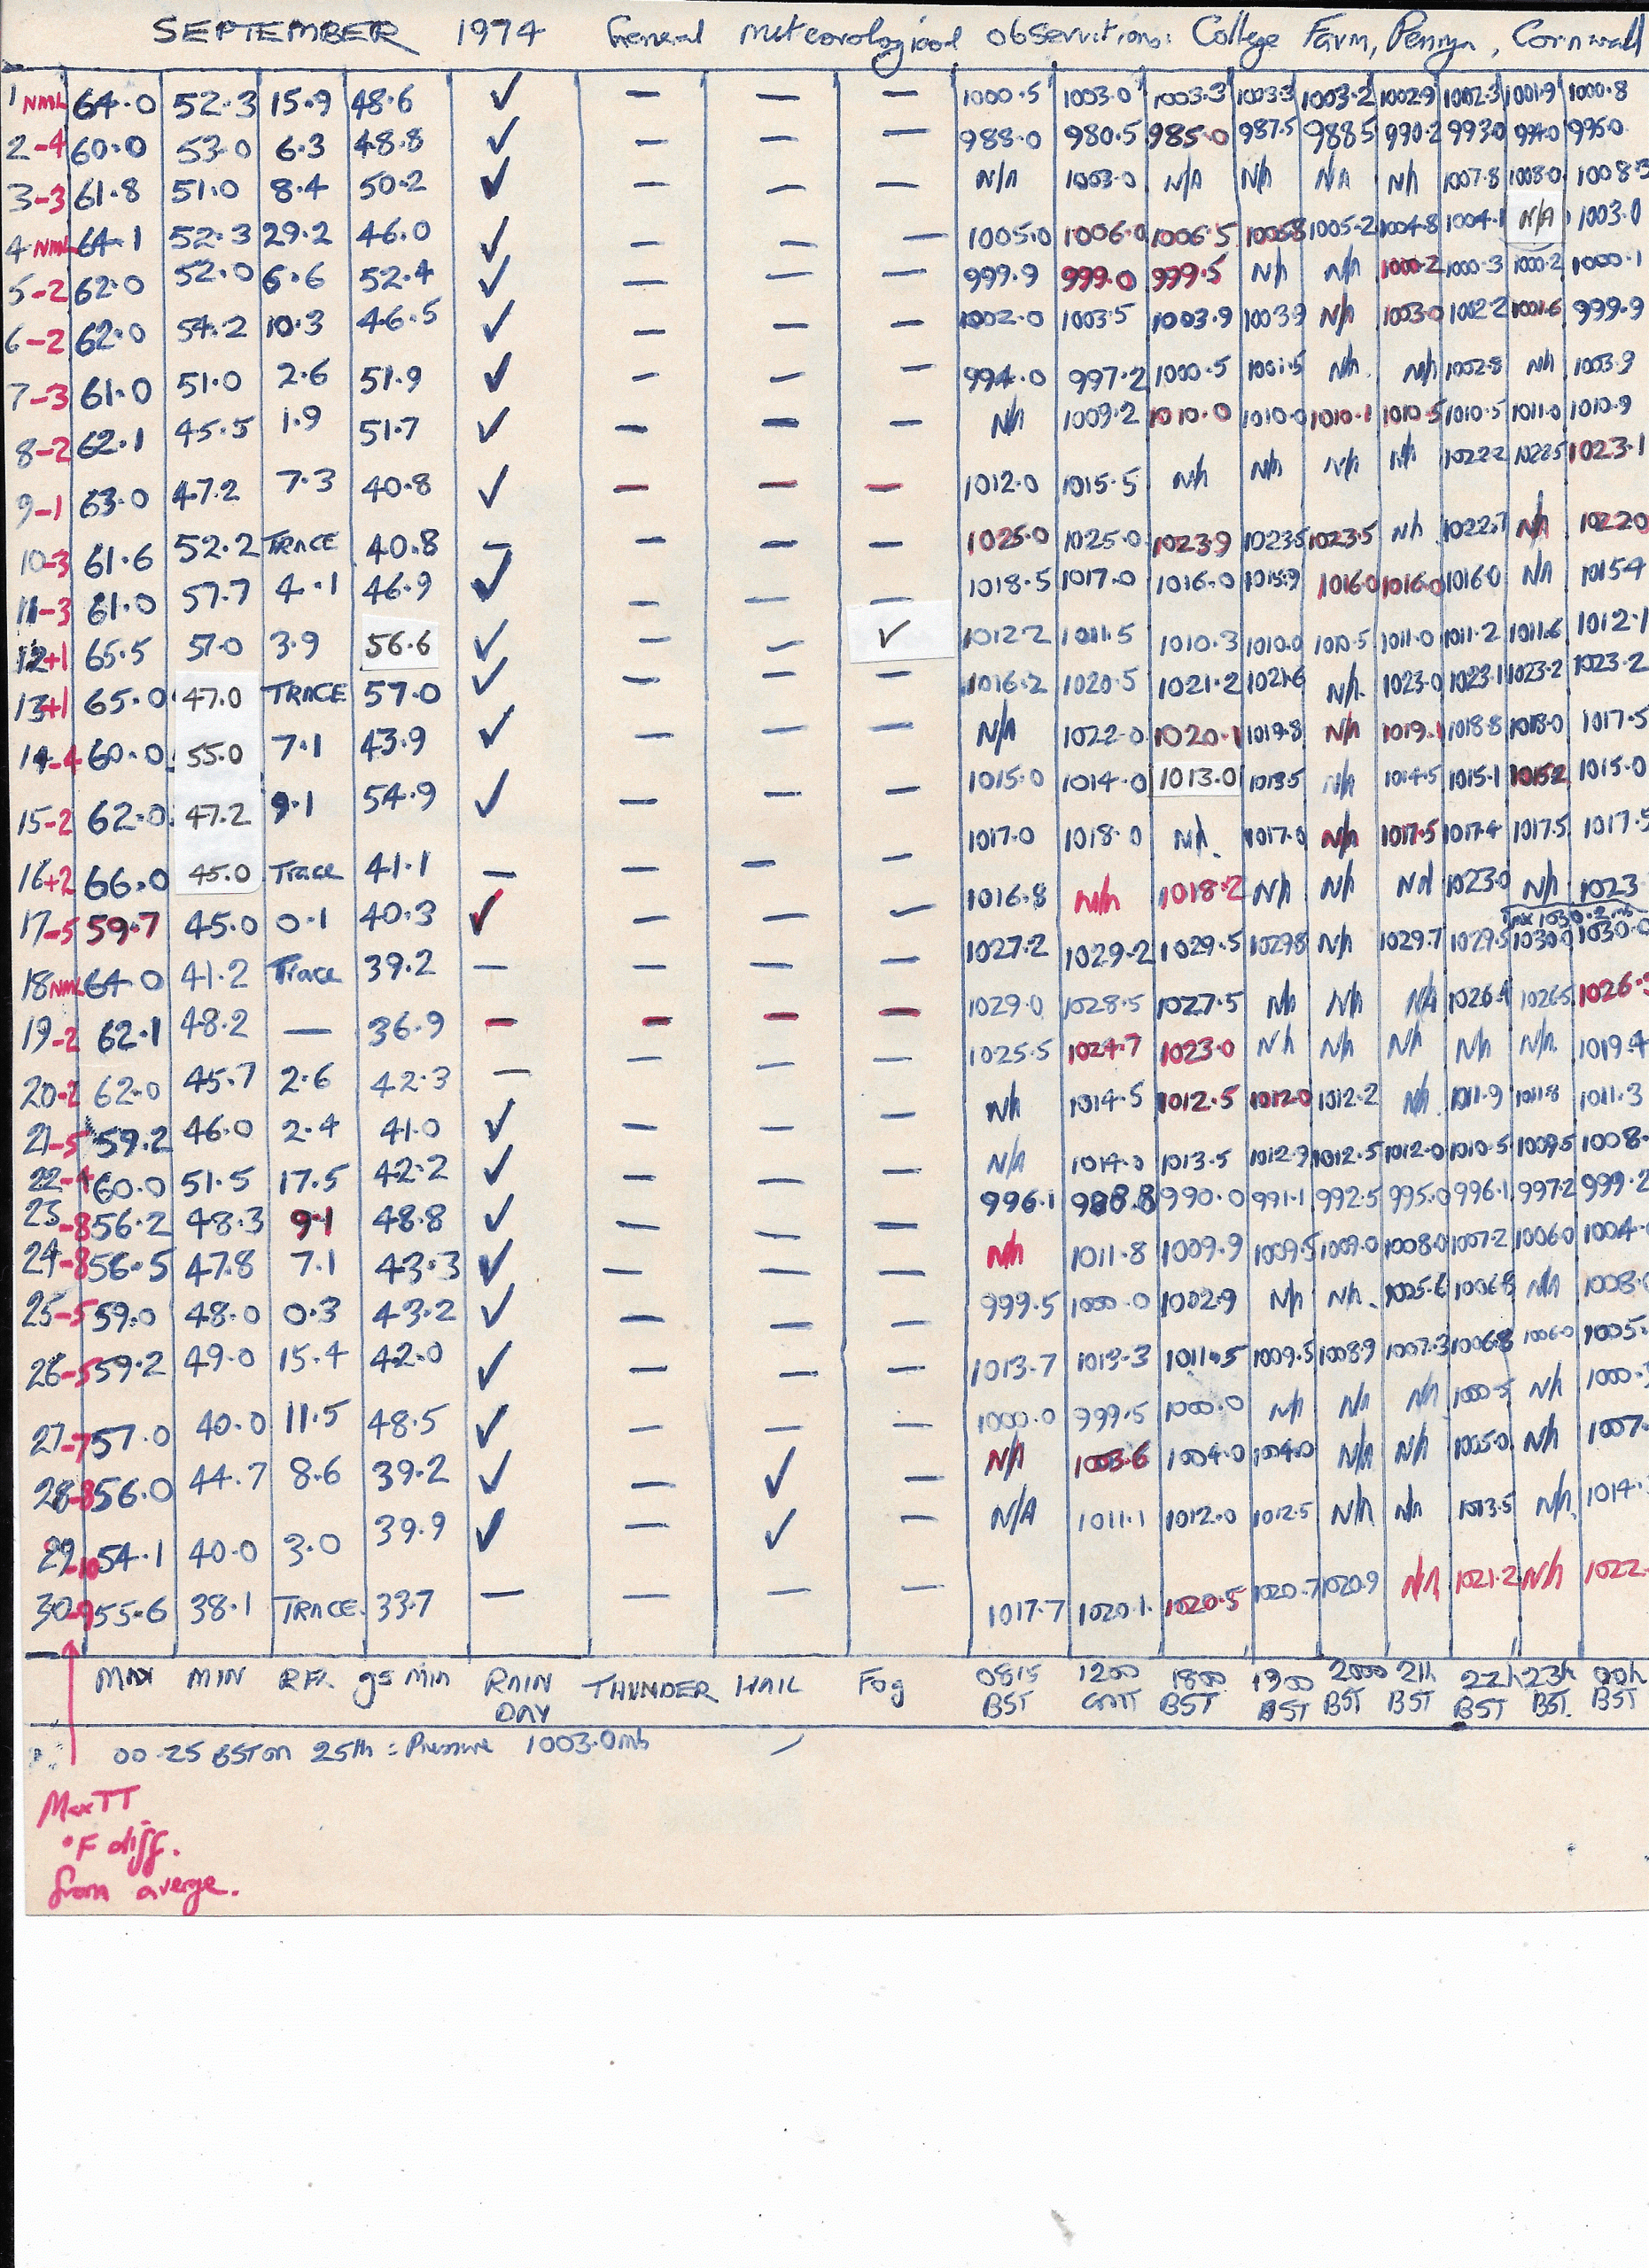 SEPTEMBER 1974 General meteorological observations: College Farm, Penryn, Cornwall
1 NML 64.0 52.3 15.9 48.6 ✓ — — — 1000.5 1003.0 1003.3 1003.3 1003.2 1002.9 1002.3 1001.9 1000.8
2 -4 60.0 53.0 6.3 48.8 ✓ — — — 988.0 980.5 985.0 987.5 988.5 990.2 993.0 994.0 995.0
3 -3 61.8 51.0 8.4 50.2 ✓ — — — N/A 1003.0 N/A N/A N/A N/A 1007.8 1008.0 1008.3
4 NML 64.1 52.3 29.2 46.0 ✓ — — — 1005.0 1006.0 1006.5 1006.8 1005.2 1004.8 1004.1 N/A 1003.0
5 -2 62.0 52.0 6.6 52.4 ✓ — — — 999.9 999.0 999.5 N/A N/A 1000.2 1000.3 1000.2 1000.1
6 -2 62.0 54.2 10.3 46.5 ✓ — — — 1002.0 1003.5 1003.9 1003.9 N/A 1003.0 1002.2 1001.6 999.9
7 -3 61.0 51.0 2.6 51.9 ✓ — — — 994.0 997.2 1000.5 1001.5 N/A N/A 1002.8 N/A 1003.9
8 -2 62.1 45.5 1.9 51.7 ✓ — — — N/A 1009.2 1010.0 1010.0 1010.1 1010.5 1010.5 1011.0 1010.9
9 -1 63.0 47.2 7.3 40.8 ✓ — — — 1012.0 1015.5 N/A N/A N/A N/A 1022.2 1022.5 1023.1
10 -3 61.6 52.2 TRACE 40.8 — — — — 1025.0 1025.0 1023.9 1023.5 1023.5 N/A 1022.7 N/A 1022.0
11 -3 61.0 57.7 4.1 46.9 ✓ — — — 1018.5 1017.0 1016.0 1015.9 1016.0 1016.0 1016.0 N/A 1015.4
12 +1 65.5 57.0 3.9 56.6 ✓ — — ✓ 1012.2 1011.5 1010.3 1010.0 1010.5 1011.0 1011.2 1011.6 1012.1
13 +1 65.0 47.0 TRACE 57.0 ✓ — — — 1016.2 1020.5 1021.2 1021.6 N/A 1023.0 1023.1 1023.2 1023.2
14 -4 60.0 55.0 7.1 43.9 ✓ — — — N/A 1022.0 1020.1 1019.8 N/A 1019.1 1018.8 1018.0 1017.5
15 -2 62.0 47.2 9.1 54.9 ✓ — — — 1015.0 1014.0 1013.0 1013.5 N/A 1014.5 1015.1 1015.2 1015.0
16 +2 66.0 45.0 Trace 41.1 — — — — 1017.0 1018.0 N/A 1017.0 N/A 1017.5 1017.4 1017.5 1017.5
17 -5 59.7 45.0 0.1 40.3 ✓ — — — 1016.8 N/A 1018.2 N/A N/A N/A 1023.0 N/A 1023
Max 1030.2 mb
18 NML 64.0 41.2 Trace 39.2 — — — — 1027.2 1029.2 1029.5 1029.8 N/A 1029.7 1029.5 1030.0 1030.0
19 -2 62.1 48.2 — 36.9 — — — — 1029.0 1028.5 1027.5 N/A N/A N/A 1026.4 1026.5 1026.3
20 -2 62.0 45.7 2.6 42.3 — — — — 1025.5 1024.7 1023.0 N/A N/A N/A N/A N/A 1019.4
21 -5 59.2 46.0 2.4 41.0 ✓ — — — N/A 1014.5 1012.5 1012.0 1012.2 N/A 1011.9 1011.8 1011.3
22 -4 60.0 51.5 17.5 42.2 ✓ — — — N/A 1014.0 1013.5 1012.9 1012.5 1012.0 1010.5 1009.5 1008.
23 -8 56.2 48.3 9.1 48.8 ✓ — — — 996.1 988.8 990.0 991.1 992.5 995.0 996.1 997.2 999.2
24 -8 56.5 47.8 7.1 43.3 ✓ — — — N/A 1011.8 1009.9 1009.5 1009.0 1008.0 1007.2 1006.0 1004.
25 -5 59.0 48.0 0.3 43.2 ✓ — — — 999.5 1000.0 1002.9 N/A N/A 1005.6 1006.8 N/A 1008.
26 -5 59.2 49.0 15.4 42.0 ✓ — — — 1013.7 1013.3 1011.5 1009.5 1008.9 1007.3 1006.8 1006.0 1005.
27 -7 57.0 40.0 11.5 48.5 ✓ — — — 1000.0 999.5 1000.0 N/A N/A N/A 1000.5 N/A 1000.
28 -8 56.0 44.7 8.6 39.2 ✓ — ✓ — N/A 1003.6 1004.0 1004.0 N/A N/A 1005.0 N/A 1007.
29 -10 54.1 40.0 3.0 39.9 ✓ — ✓ — N/A 1011.1 1012.0 1012.5 N/A N/A 1013.5 N/A 1014.
30 -9 55.6 38.1 TRACE 33.7 — — — — 1017.7 1020.1 1020.5 1020.7 1020.9 N/A 1021.2 N/A 1022.
MAX MIN RFL. gs min RAIN DAY THUNDER HAIL Fog 0815 BST 1200 GMT 1800 BST 1900 BST 2000 BST 21h BST 22h BST 23h BST. 00h BST
00.25 BST on 25th : Pressure 1003.0mb
Max TT
°F diff.
from averge.